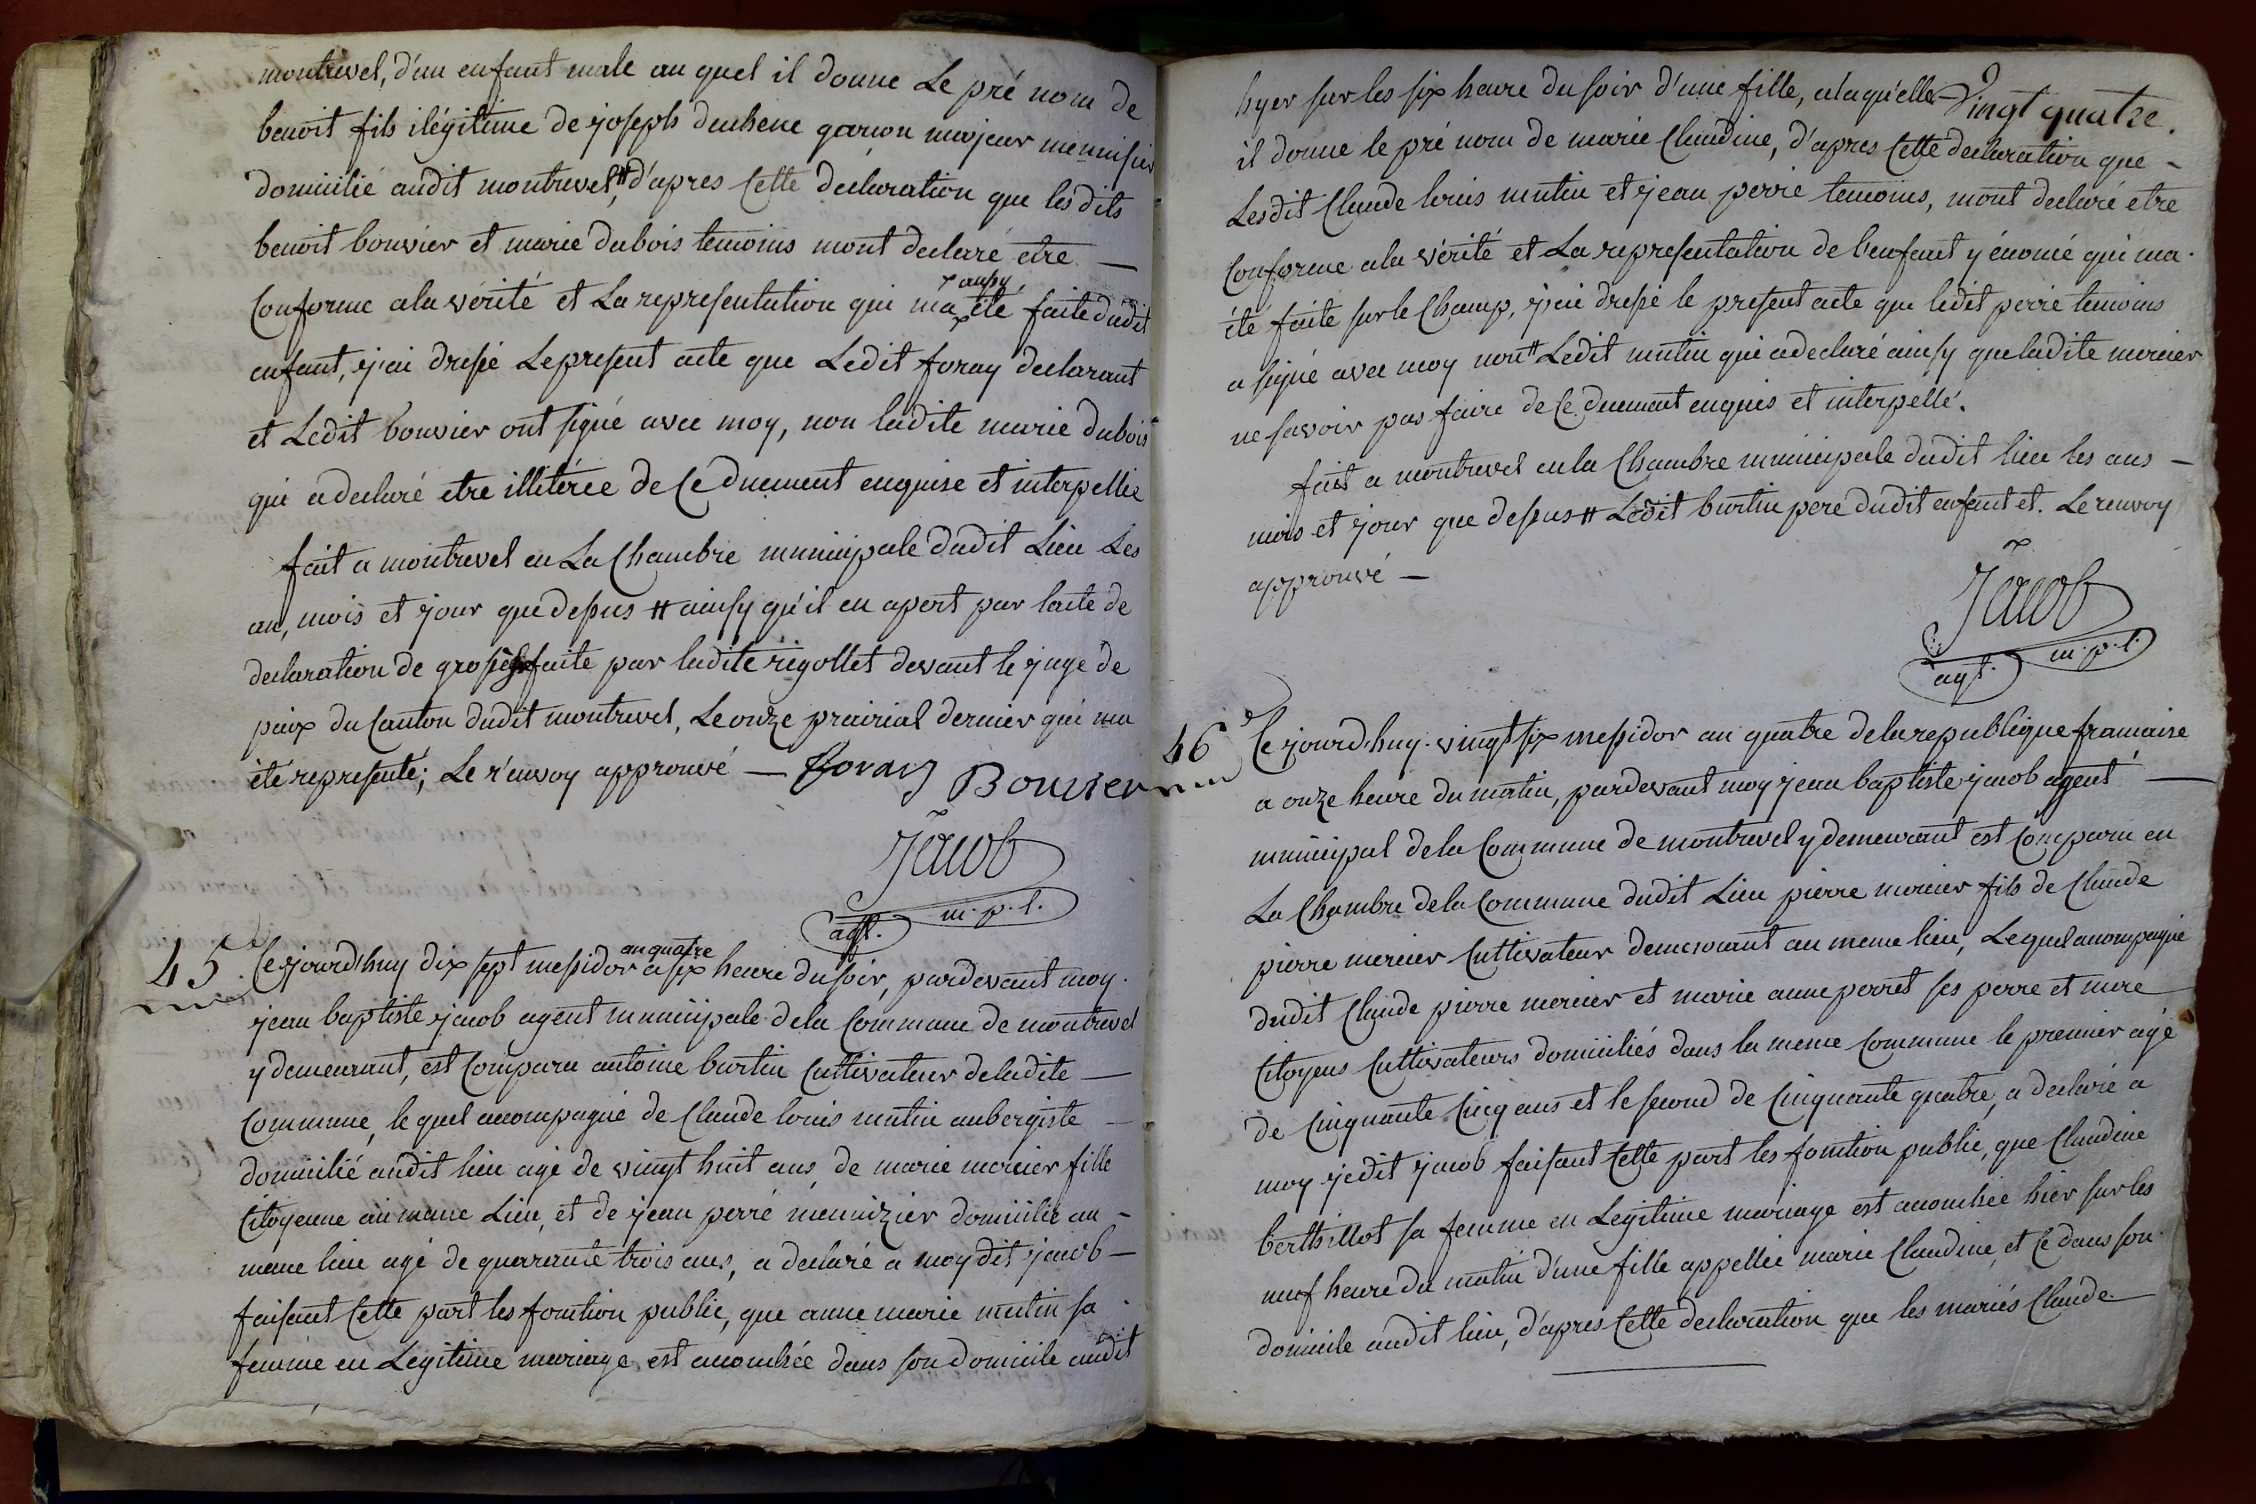 montrevel, d'un enfant male au quel il donne Le pré nom de
benoit fils ilégitime de joseph duchene garçon majeur menuisier
domicilié audit montrevel,# d'apres Cette declaration que lesdits
benoit bouvier et marie dubois temoins mont declaré etre —
7 aussy
Conforme ala vérité et La representation qui ma été faite dudit
enfant, j'ai dressé Le present acte que Ledit foray declarant
et Ledit bouvier ont signé avec moy, non ladite marie dubois
qui a declaré etre illitérée de Ce duement enquise et interpellée
fait a montrevel en La Chambre municipale dudit Lieu Les
an, mois et jour que dessus # ainsy qu'il en apert par lacte de
declaration de grossesse faite par ladite rigollet devant le juge de
paix du Canton dudit montrevel, Le onze prairial dernier qui ma
été representé; Le r'envoy approuvé — foray Bouvier
Jacob
agt. m.p.l.
45. Cejourd'huy dix sept messidor an quatre a six heure du soir, pardevant moy.
jean baptiste jacob agent municipale dela Commune de montrevel
y demeurant, est Comparu antoine burtin Cultivateur deladite —
Commune, le quel acompagné de Claude louis mutin aubergiste —
domicilié audit lieu agé de vingt huit ans, de marie mercier fille
Citoyenne au meme Lieu, et de jean perré menuizier domicilié au -
meme lieu agé de quarante trois ans, a declaré a moy dit jacob —
faisant Cette part les fonction public, que anne marie mutin sa
femme en Legitime mariage est acouchée dans son domicile audit
Vingt quatre.
hyer sur les six heure du soir d'une fille, alaquelle
il donne le pré nom de marie Claudine, d'apres Cette declaration que -
Lesdit Claude louis mutin et jean perré temoins, mont declaré etre
Conforme ala vérité et La representation de l'enfant y énoncé qui ma.
été faite sur le Champ, j'ai dressé le present acte que ledit perré temoins
a signé avec moy non # Ledit mutin qui a declaré ainsy que ladite mercier
ne savoir pas faire de Ce duement enquis et interpellé.
fait a montrevel en la Chambre municipale dudit lieu les ans —
mois et jour que dessus # Ledit burtin pere dudit enfant et. Le renvoy
approuvé —
Jacob
agt. m.p.l.
46 Cejourd'huy. vingt six messidor an quatre dela republique francaise
a onze heure du matin, pardevant moy jean baptiste jacob agent —
municipal dela Commune de montrevel y demeurant est Comparu en
La Chambre dela Commune dudit Lieu pierre mercier fils de Claude
pierre mercier Cultivateur demeurant au meme lieu, Lequel acompagné
dudit Claude pierre mercier et marie anne perret ses perre et mere
Citoyens Cultivateurs domiciliés dans la meme Commune le premier agé
de Cinquante Cinq ans et le second de Cinquante quatre, a declaré a
moy jedit jacob faisant Cette part les fonction public, que Claudine
berthillot sa femme en Legitime mariage est acouchée hier sur les
neuf heure du matin d'une fille appellée marie Claudine, et Ce dans son.
domicile audit lieu, d'apres Cette declaration que les mariés Claude.